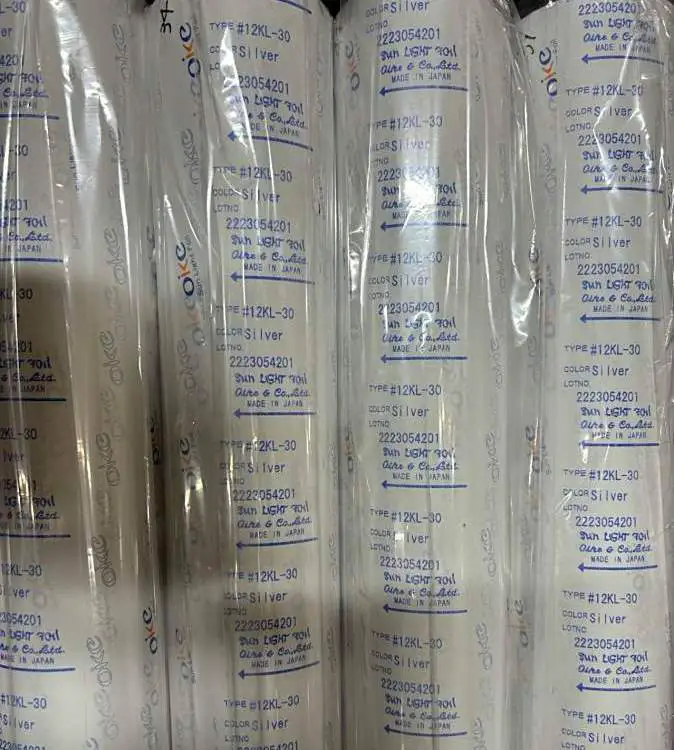 L-30
LIGHT Foil
& Co.,Ltd.
JAPAN
KL-30
4201
LIGHT Foil
& Co.,Ltd.
IN JAPAN
KL-30
ver
4201
LIGHT Foil
& Co.,Ltd.
IN JAPAN
2KL-30
lver
054201
LIGHT Foil
& Co.,Ltd.
12KL-30
lver
3054201
LIGHT Foil
& Co.,Ltd.
MADE IN JAPAN
#12KL-30
Silver
23054201
34
OiKe
TYPE #12KL-30
COLOR Silver
2223054201
Sun LIGHT Foil
Oike & Co.,Ltd.
MADE IN JAPAN
TYPE #12KL-30
COLOR Silver
LOTNO.
2223054201
Sun LIGHT Foil
Oike & Co.,Ltd.
MADE IN JAPAN
OiKe
Sun LIGHT Foil
TYPE #12KL-30
COLOR Silver
LOTNO.
2223054201
Sun LIGHT Foil
Oike & Co.,Ltd.
MADE IN JAPAN
TYPE #12KL-30
COLOR Silver
LOTNO.
2223054201
Sun LIGHT Foil
Oike & Co.,Ltd.
MADE IN JAPAN
TYPE #12KL-30
COLOR Silver
LOTNO.
2223054201
Sun LIGHT Foil
Oike & Co.,Ltd.
MADE IN JAPAN
OiKe
TYPE #12KL-30
COLOR Silver
LOTNO.
2223054201
COLOR Silver
2223054201
Sun LIGHT Foil
Oike & Co.,Ltd.
MADE IN JAPAN
TYPE #12KL-30
COLOR Silver
Sun LIGHT Foil
Oike & Co.,Ltd.
MADE IN JAPAN
TYPE #12KL-30
COLOR Silver
LOTNO.
2223054201
Sun LIGHT Foil
Oike & Co.,Ltd.
MADE IN JAPAN
TYPE #12KL-30
COLOR Silver
LOTNO.
2223054201
Sun LIGHT Foil
Oike & Co.,Ltd.
MADE IN JAPAN
TYPE #12KL-30
COLOR Silver
LOTNO.
2223054201
Sun LIGHT Foil
Oike & Co.,Ltd.
MADE IN JAPAN
TYPE #12KL-30
COLOR Silver
LOTNO.
2223054201
Sun LIGHT Foil
Oike & Co.,Ltd.
MADE IN JAPAN
OiKe
2223054201
Sun LIGHT Foil
Oike & Co.,Ltd.
MADE IN JAPAN
TYPE #12KL-30
COLOR Silver
LOTNO.
2223054201
Sun LIGHT Foil
Oike & Co.,Ltd.
MADE IN JAPAN
TYPE #12KL-30
COLOR Silver
LOTNO.
2223054201
Sun LIGHT Foil
Oike & Co.,Ltd.
MADE IN JAPAN
TYPE #12KL-30
COLOR Silver
LOTNO.
2223054201
Sun LIGHT Foil
Oike & Co.,Ltd.
MADE IN JAPAN
TYPE #12KL-30
COLOR Silver
LOTNO.
2223054201
Sun LIGHT Foil
Oike & Co.,Ltd.
MADE IN JAPAN
TYPE #12KL-30
COLOR Silver
LOTNO.
2223054201
Sun LIGHT Foil
Oike & Co.,Ltd.
MADE IN JAPAN
TYPE #12KL-30
COLOR Silver